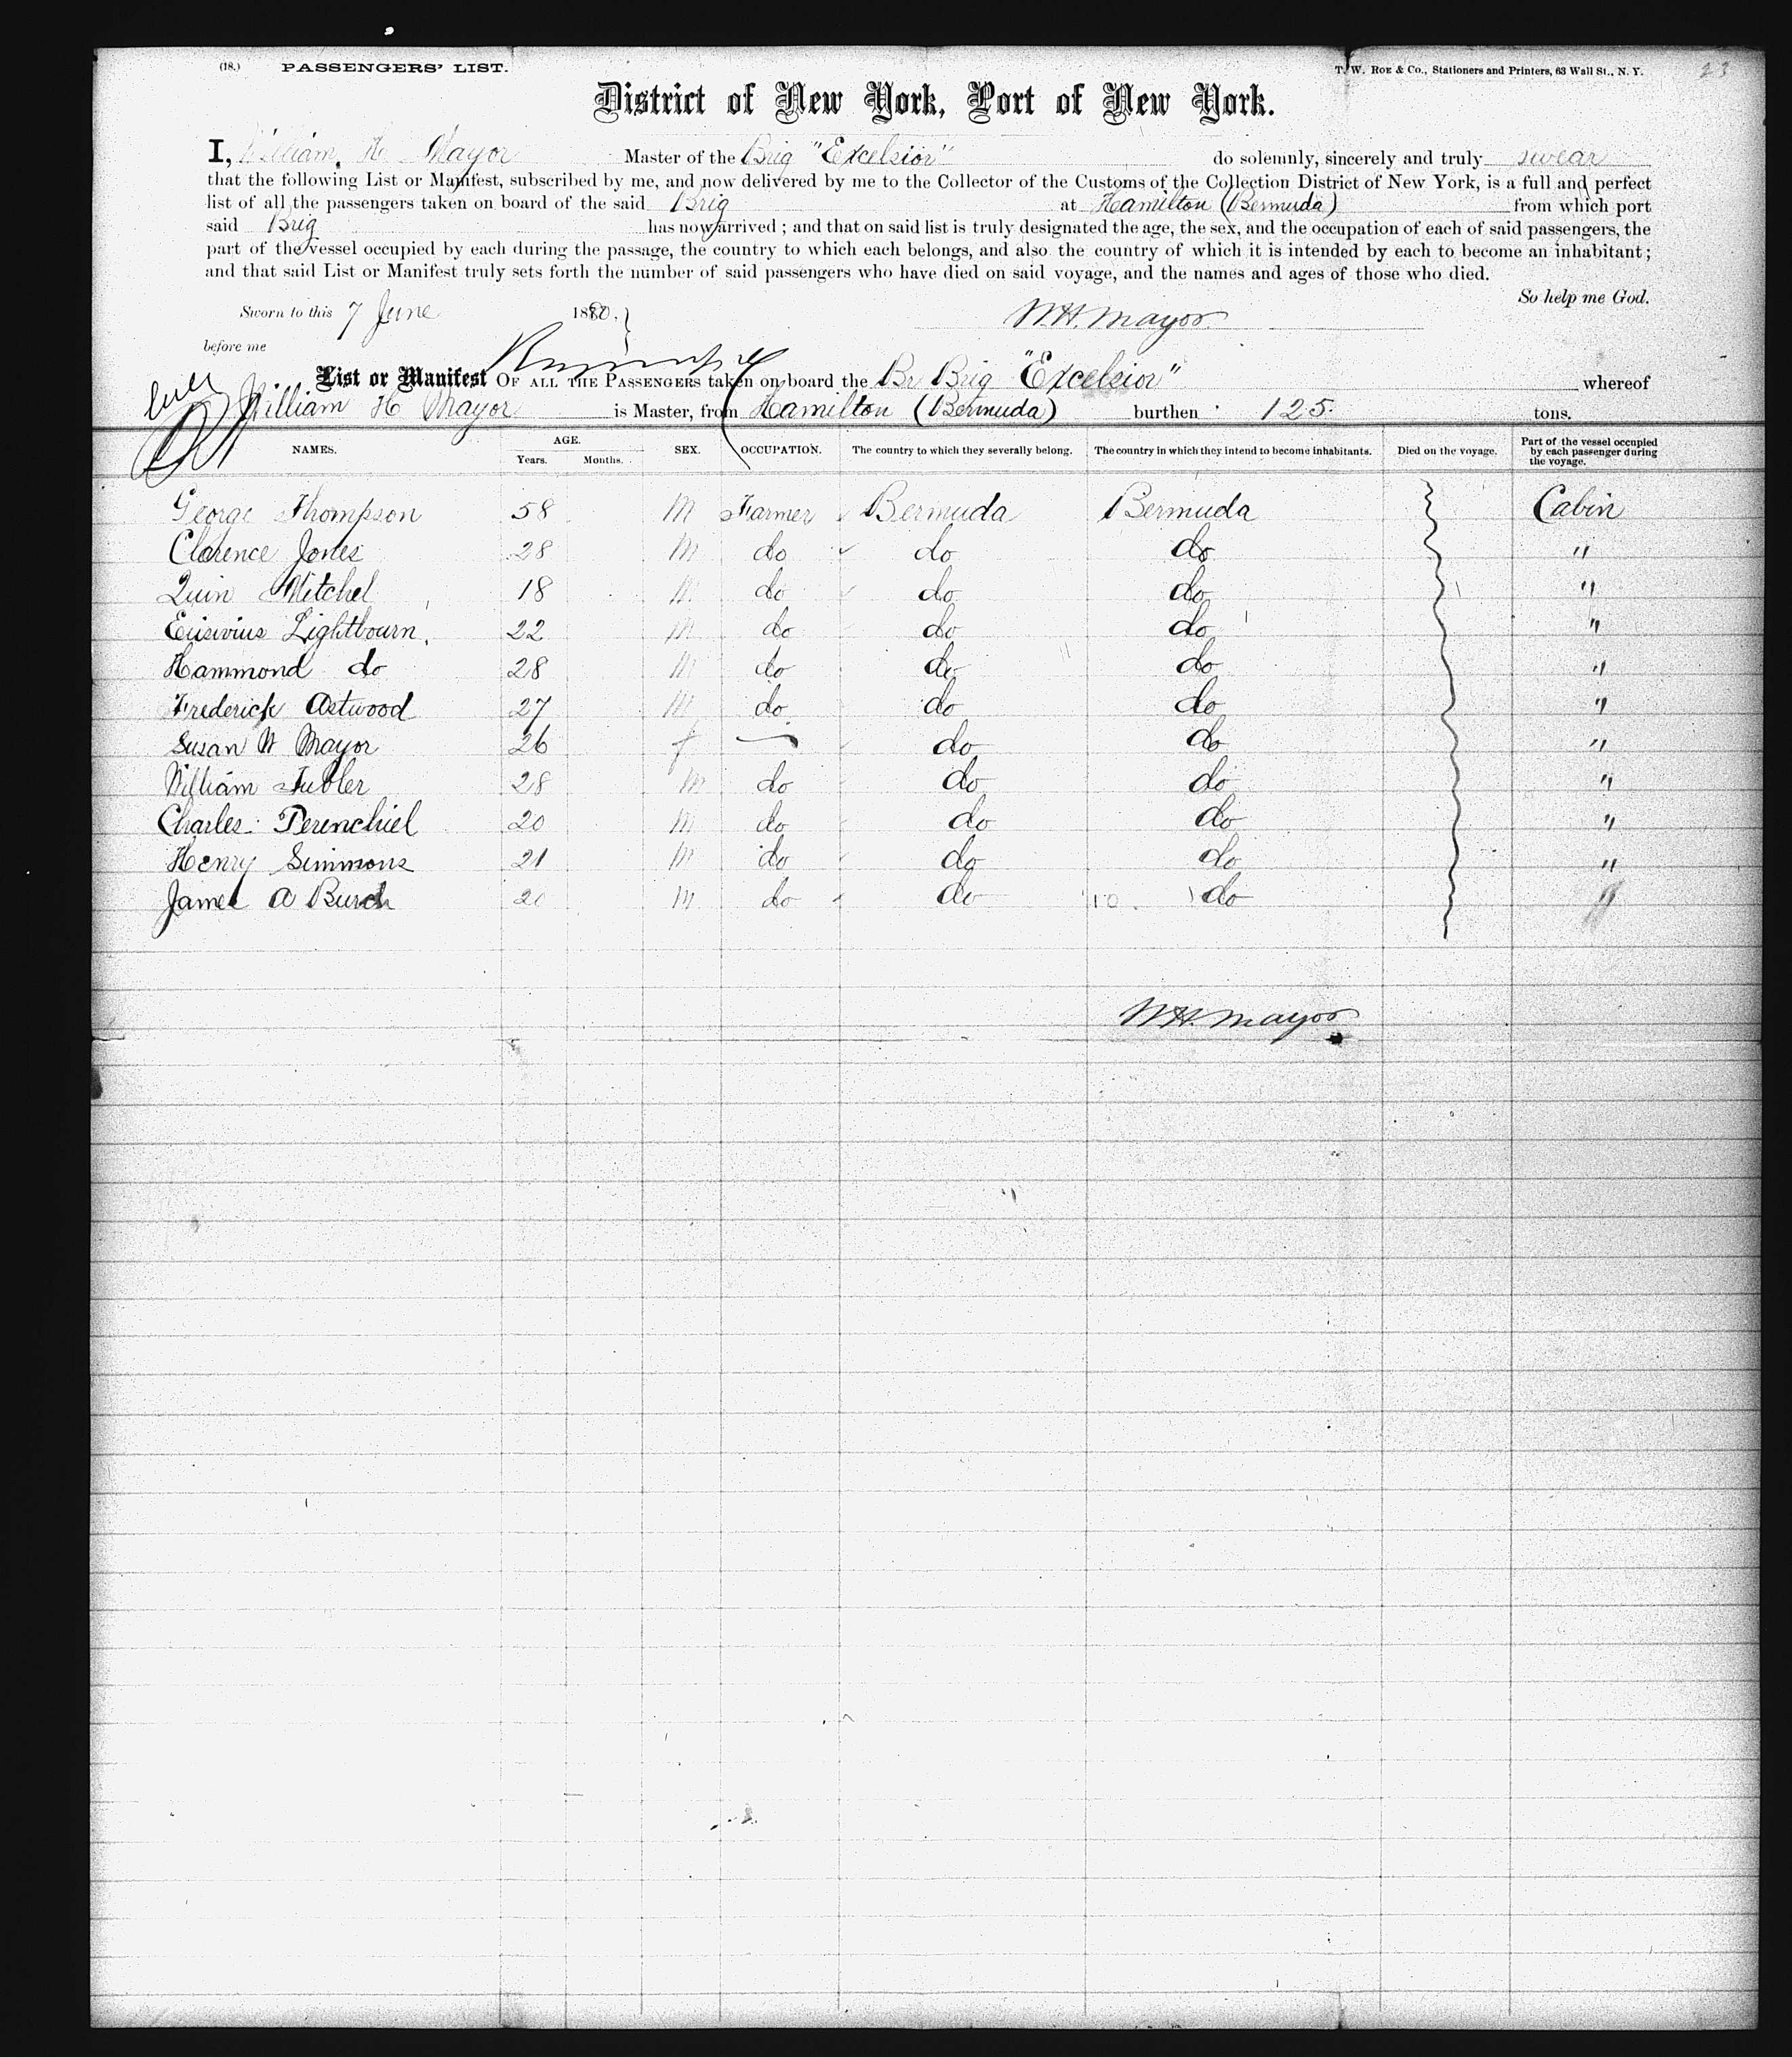 (18.) PASSENGERS' LIST. T. W. ROE & Co., Stationers and Printers, 63 Wall St., N. Y. 23
District of New York, Port of New York.
I, William. H. Mayor Master of the Brig "Excelsior" do solemnly, sincerely and truly swear
that the following List or Manifest, subscribed by me, and now delivered by me to the Collector of the Customs of the Collection District of New York, is a full and perfect
list of all the passengers taken on board of the said Brig at Hamilton (Bermuda) from which port
said Brig has now arrived; and that on said list is truly designated the age, the sex, and the occupation of each of said passengers, the
part of the vessel occupied by each during the passage, the country to which each belongs, and also the country of which it is intended by each to become an inhabitant;
and that said List or Manifest truly sets forth the number of said passengers who have died on said voyage, and the names and ages of those who died.
So help me God.
Sworn to this 7 June 1880. W. H. Mayor
before me
List or Manifest OF ALL THE PASSENGERS taken on board the Br Brig "Excelsior" whereof
William H Mayor is Master, from Hamilton (Bermuda) burthen 125 tons.
NAMES. AGE. Years. Months. SEX. OCCUPATION. The country to which they severally belong. The country in which they intend to become inhabitants. Died on the voyage. Part of the vessel occupied by each passenger during the voyage.
George Thompson 58 M Farmer Bermuda Bermuda Cabin
Clarence Jones 28 M do do do "
Quin Mitchel 18 M do do do "
Lightbourn. 22 M do do do "
Hammond do 28 M do do do "
Frederick Astwood 27 M do do do "
Susan W Mayor 26 f — do do "
William Tubler 28 M do do do "
Charles Perenchiel 20 M do do do "
Henry Simmons 21 M do do do "
James A Burch 20 M do do do "
W. H. Mayor